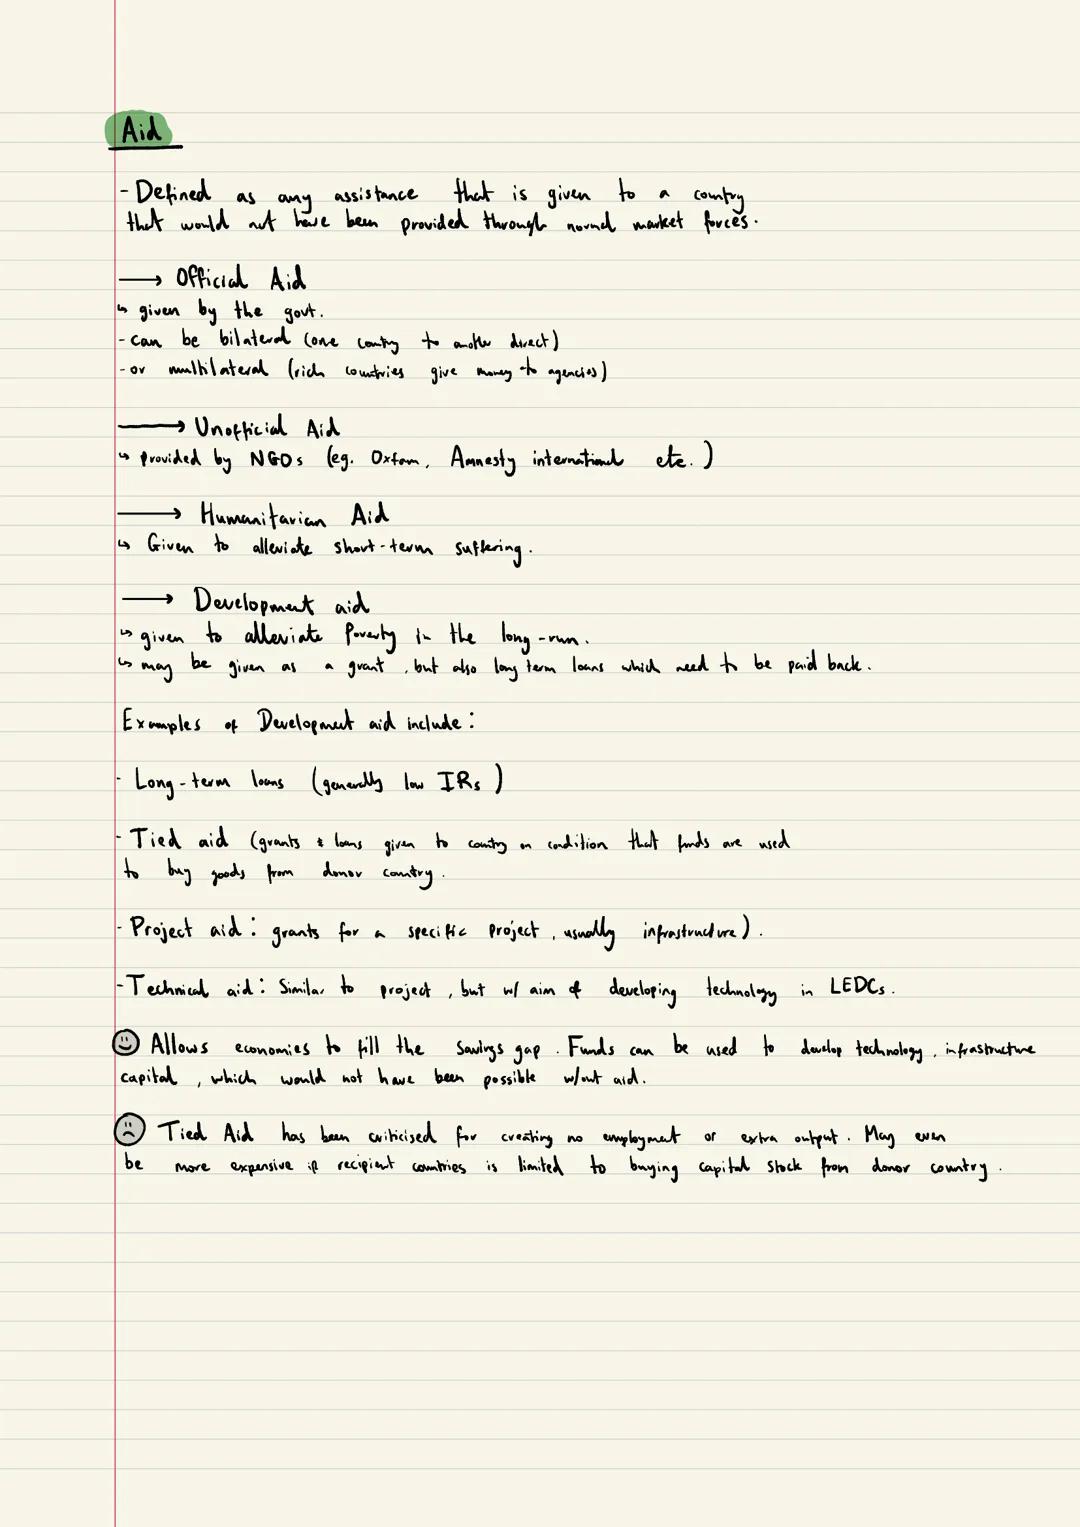 Aid
- Defined as any assistance that is given to a country
that would not have been provided through normal market forces.
⟶ Official Aid
↳ given by the govt.
- can be bilateral (one country to another direct)
- or multilateral (rich countries give money to agencies)
⟶ Unofficial Aid
↳ provided by NGOs (eg. Oxfam, Amnesty international etc.)
⟶ Humanitarian Aid
↳ Given to alleviate short-term suffering.
⟶ Development aid
↳ given to alleviate Poverty in the long-run.
↳ may be given as a grant, but also long term loans which need to be paid back.
Examples of Development aid include:
- Long-term loans (generally low IRs)
- Tied aid (grants & loans given to country on condition that funds are used
to buy goods from donor country.
- Project aid: grants for a specific project, usually infrastructure).
- Technical aid: Similar to project, but w/ aim of developing technology in LEDCs.
☺ Allows economies to fill the savings gap. Funds can be used to develop technology, infrastructure
capital, which would not have been possible w/out aid.
☹ Tied Aid has been criticised for creating no employment or extra output. May even
be more expensive if recipient countries is limited to buying capital stock from donor country.